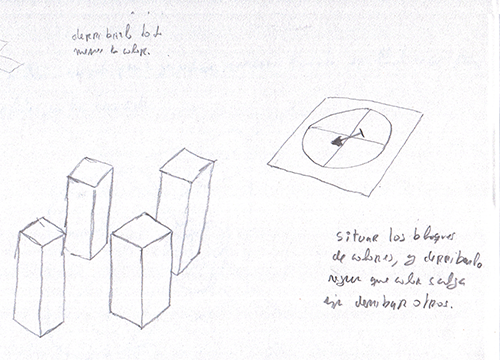 derribarlo todo
menos la color.
situar los bloques
de colores, y derribarlo
según que color salga
sin derribar otros.